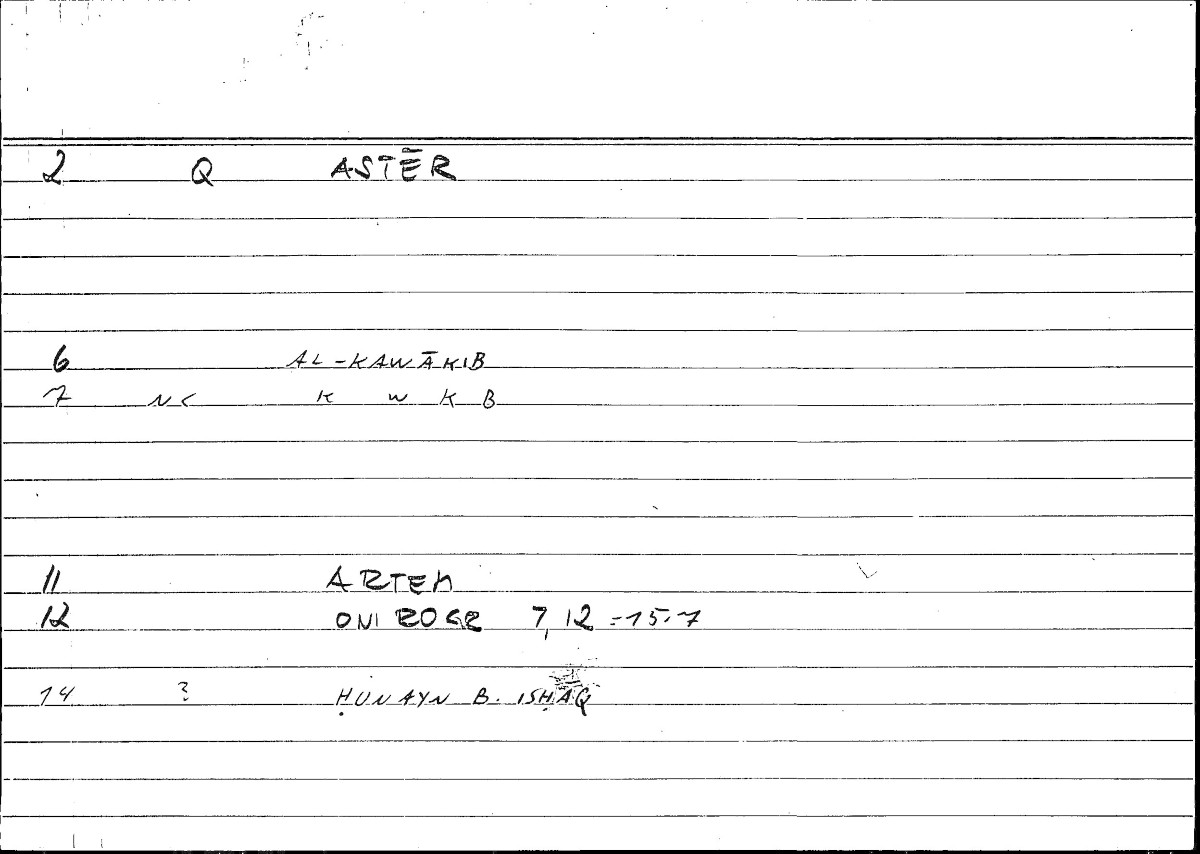 2 Q ASTĒR
6 AL-KAWĀKIB
7 NC K W K B
11 ARTEM
12 ONIROCR 7,12 = 15.7
14 ? ḤUNAYN B. ISḤĀQ